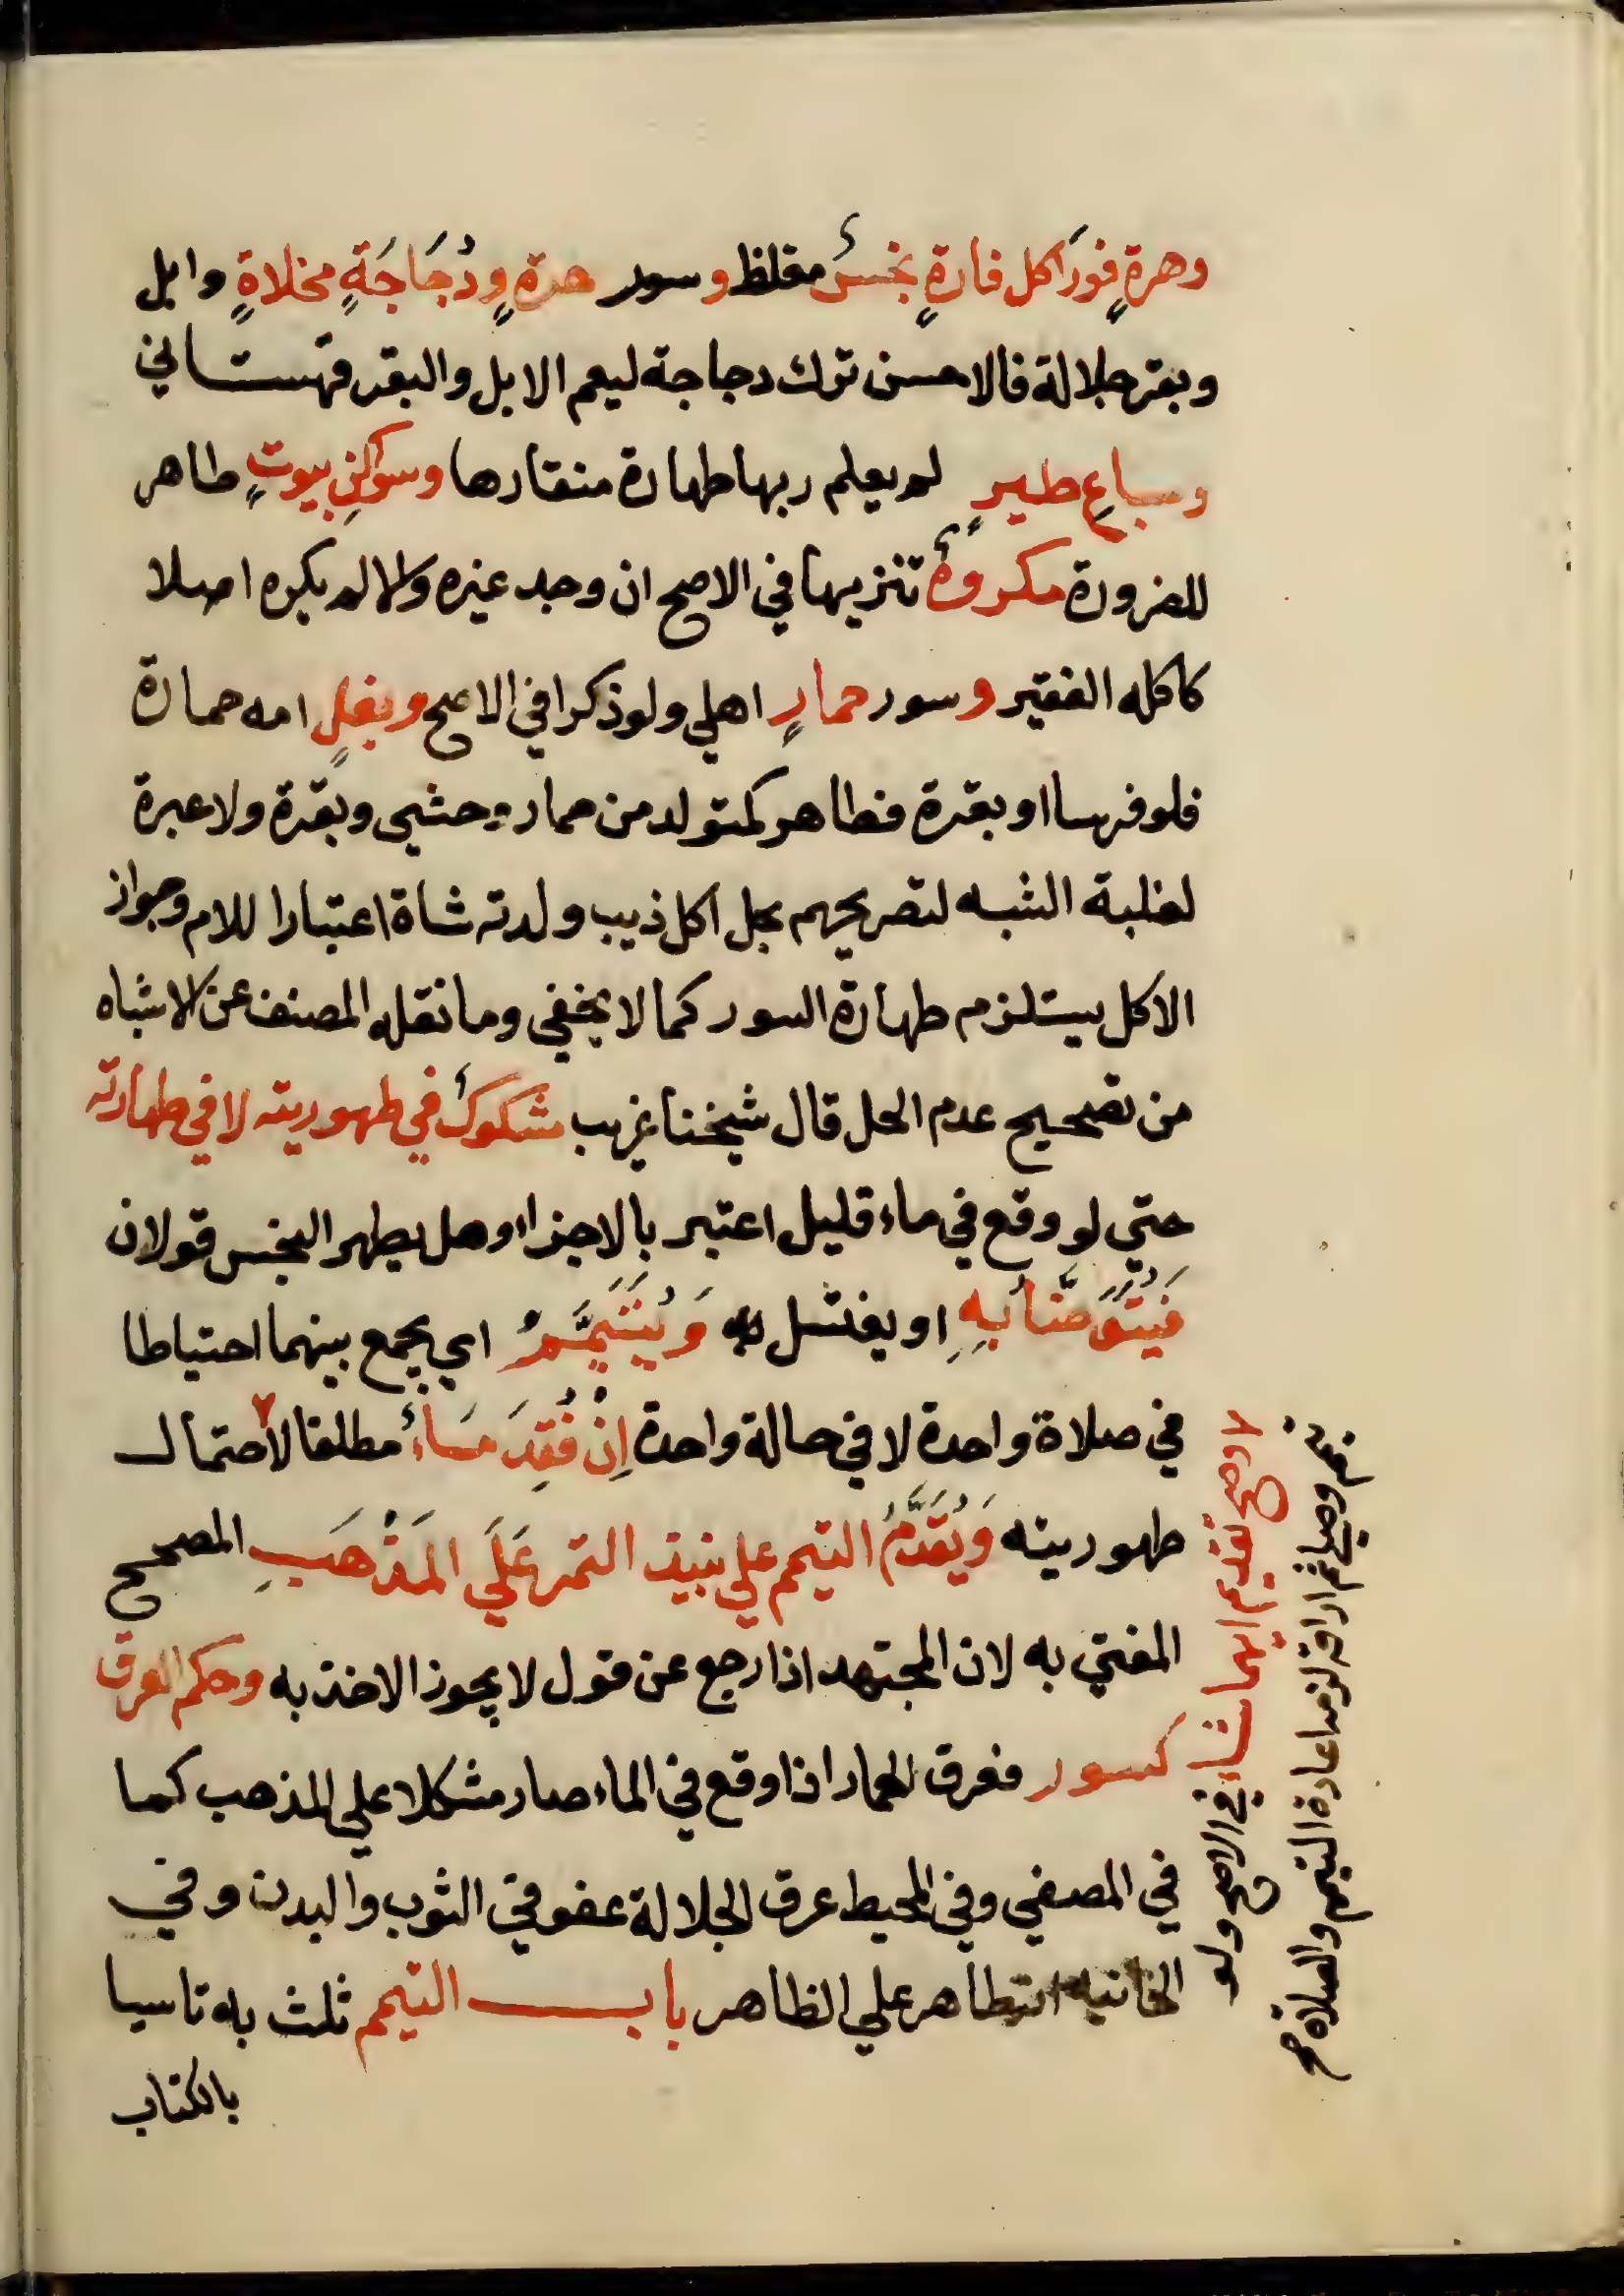 وهرةٍ فورَ اكل فارةٍ نجسٌ مغلظ وسور هرةٍ ودُجَاجَةٍ مخلاةٍ وابل
وبقر جلالة فالاحسن ترك دجاجة ليعم الابل والبقر قهستاني
وسباعِ طيرٍ لم يعلم ربها طهارة منقارها وسواكنِ بيوتٍ طاهر
للضرورة مكروهٌ تنزيها في الاصح ان وجد غيره والا لم يكره اصلا
كاكله الفقير وسور حمارٍ اهلي ولو ذكرا في الاصح وبغلٍ امه حمارة
فلو فرسا او بقرة فطاهر كمتولد من حمار وحشي وبقرة ولا عبرة
لغلبة الشبه لتصريحهم بحل اكل ذيب ولدته شاة اعتبارا للام وجواز
الاكل يستلزم طهارة السور كما لا يخفي وما نقله المصنف عن الاشباه
من تصحيح عدم الحل قال شيخنا غريب مشكوكٌ في طهوريته لا في طهارته
حتي لو وقع في ماء قليل اعتبر بالاجزاء وهل يطهر النجس قولان
فَيُتَوَضَّأُ بِهِ او يغتسل وَيُتَيَمَّمُ اي يجمع بينهما احتياطا
في صلاة واحدة لا في حالة واحدة اِنْ فُقِدَ مَاءٌ مطلقا لاحتمال
طهوريته وَيُقَدَّمُ التيمم علي نبيذ التمر عَلَي المَذْهَبِ المصحح
المفتي به لان المجتهد اذا رجع عن قول لا يجوز الاخذ به وحكم العرق
كسور فعرق الحمار اذا وقع في الماء صار مشكلا علي المذهب كما
في المصفي وفي المحيط عرق الجلالة عفو في الثوب والبدن وفي
الخانيه انه طاهر علي الظاهر باب التيمم ثلث به تاسيا
بالكتاب
وصح تقديم ايهما شاء في الاصح ولو
تيمم وصلي ثم اراقه لزمه اعادة التيمم والصلاة صح